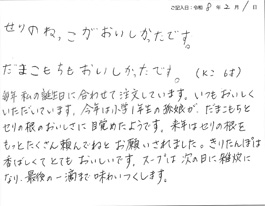 ご記入日:令和 8年 2月 1日
せりのねっこがおいしかったです。
だまこもちもおいしかったです。(Kこ 6才)
毎年 私の誕生日に合わせて注文しています。いつもおいしく
いただいています。今年は小学1年生の孫娘が、だまこもちと
セリの根のおいしさに目覚めたようです。来年はセリの根を
もっとたくさん頼んでねとお願いされました。きりたんぽは
香ばしくてとてもおいしいです。スープは次の日に雑炊に
なり、最後の一滴まで味わいつくします。